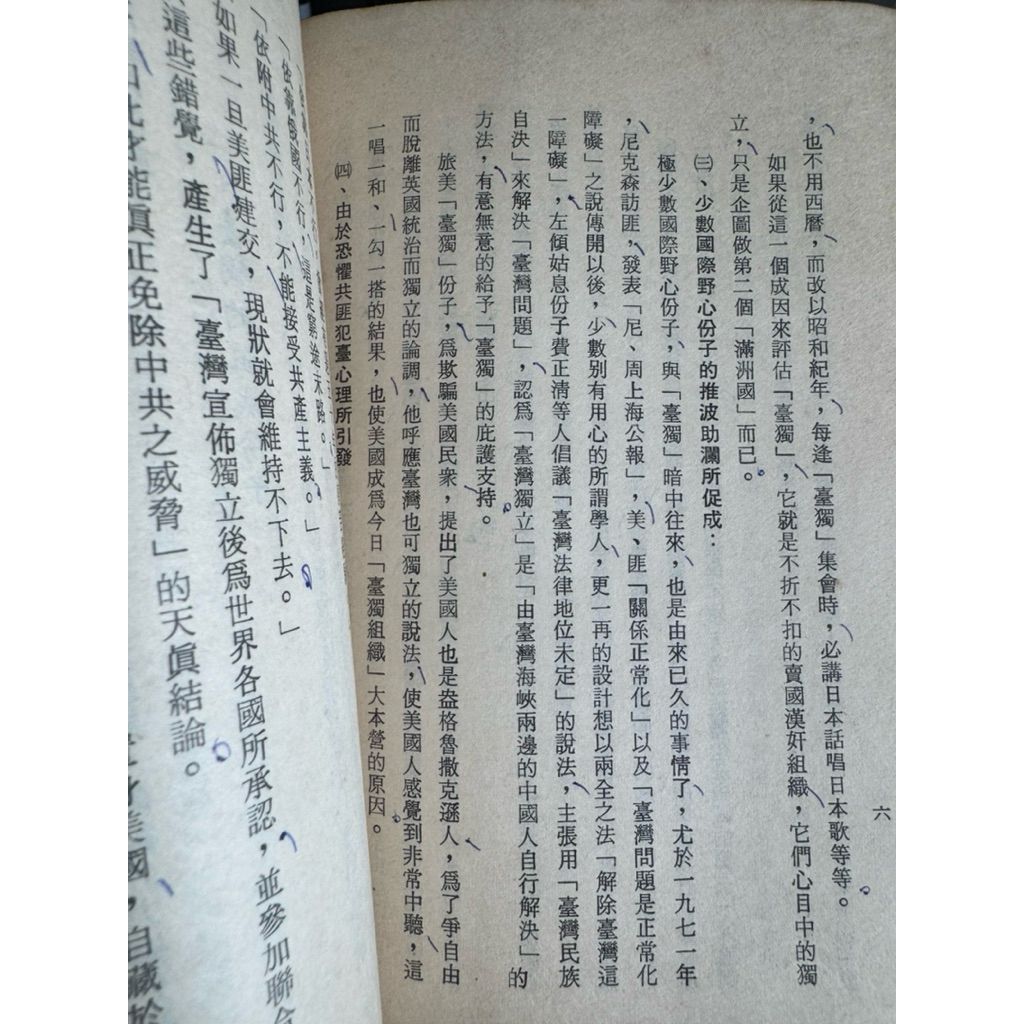 六
，也不用西曆，而改以昭和紀年，每逢「臺獨」集會時，必講日本話唱日本歌等等。
如果從這一個成因來評估「臺獨」，它就是不折不扣的賣國漢奸組織，它們心目中的獨
立，只是企圖做第二個「滿洲國」而已。
㈢、少數國際野心份子的推波助瀾所促成：
極少數國際野心份子，與「臺獨」暗中往來，也是由來已久的事情了，尤於一九七一年
，尼克森訪匪，發表「尼、周上海公報」，美、匪「關係正常化」以及「臺灣問題是正常化
障礙」之說傳開以後，少數別有用心的所謂學人，更一再的設計想以兩全之法「解除臺灣這
一障礙」，左傾姑息份子費正淸等人倡議「臺灣法律地位未定」的說法，主張用「臺灣民族
自決」來解決「臺灣問題」，認爲「臺灣獨立」是「由臺灣海峽兩邊的中國人自行解決」的
方法，有意無意的給予「臺獨」的庇護支持。
旅美「臺獨」份子，爲欺騙美國民衆，提出了美國人也是盎格魯撒克遜人，爲了爭自由
而脫離英國統治而獨立的論調，他呼應臺灣也可獨立的說法，使美國人感覺到非常中聽，這
一唱一和、一勾一搭的結果，也使美國成爲今日「臺獨組織」大本營的原因。
㈣、由於恐懼共匪犯臺心理所引發
「依靠俄國不行，這是窮途末路。」
「依附中共不行，不能接受共產主義。」
如果一旦美匪建交，現狀就會維持不下去。」
這些錯覺，產生了「臺灣宣佈獨立後爲世界各國所承認，並參加聯合
才能眞正免除中共之威脅」的天眞結論。
美國，自藏於